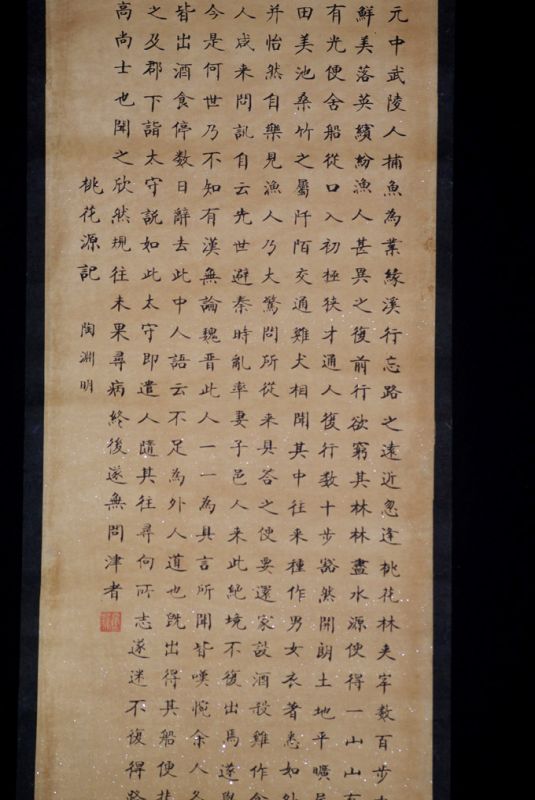 元中武陵人捕魚為業緣溪行忘路之遠近忽逢桃花林夾岸数百步
鮮美落英繽紛漁人甚異之復前行欲窮其林林盡水源便得一山山有
有光便舍船從口入初極狹才通人復行数十步豁然開朗土地平曠屋
田美池桑竹之屬阡陌交通雞犬相聞其中往来種作男女衣著悉如外
并怡然自樂見漁人乃大驚問所從来具答之便要還家設酒殺雞作食
人咸来問訊自云先世避秦時亂率妻子邑人来此絕境不復出焉遂與
今是何世乃不知有漢無論魏晉此人一一為具言所聞皆嘆惋余人各
皆出酒食停数日辭去此中人語云不足為外人道也既出得其船便扶
之及郡下詣太守説如此太守即遣人隨其往尋向所志遂迷不復得路
高尚士也聞之欣然規往未果尋病終後遂無問津者
桃花源記 陶淵明